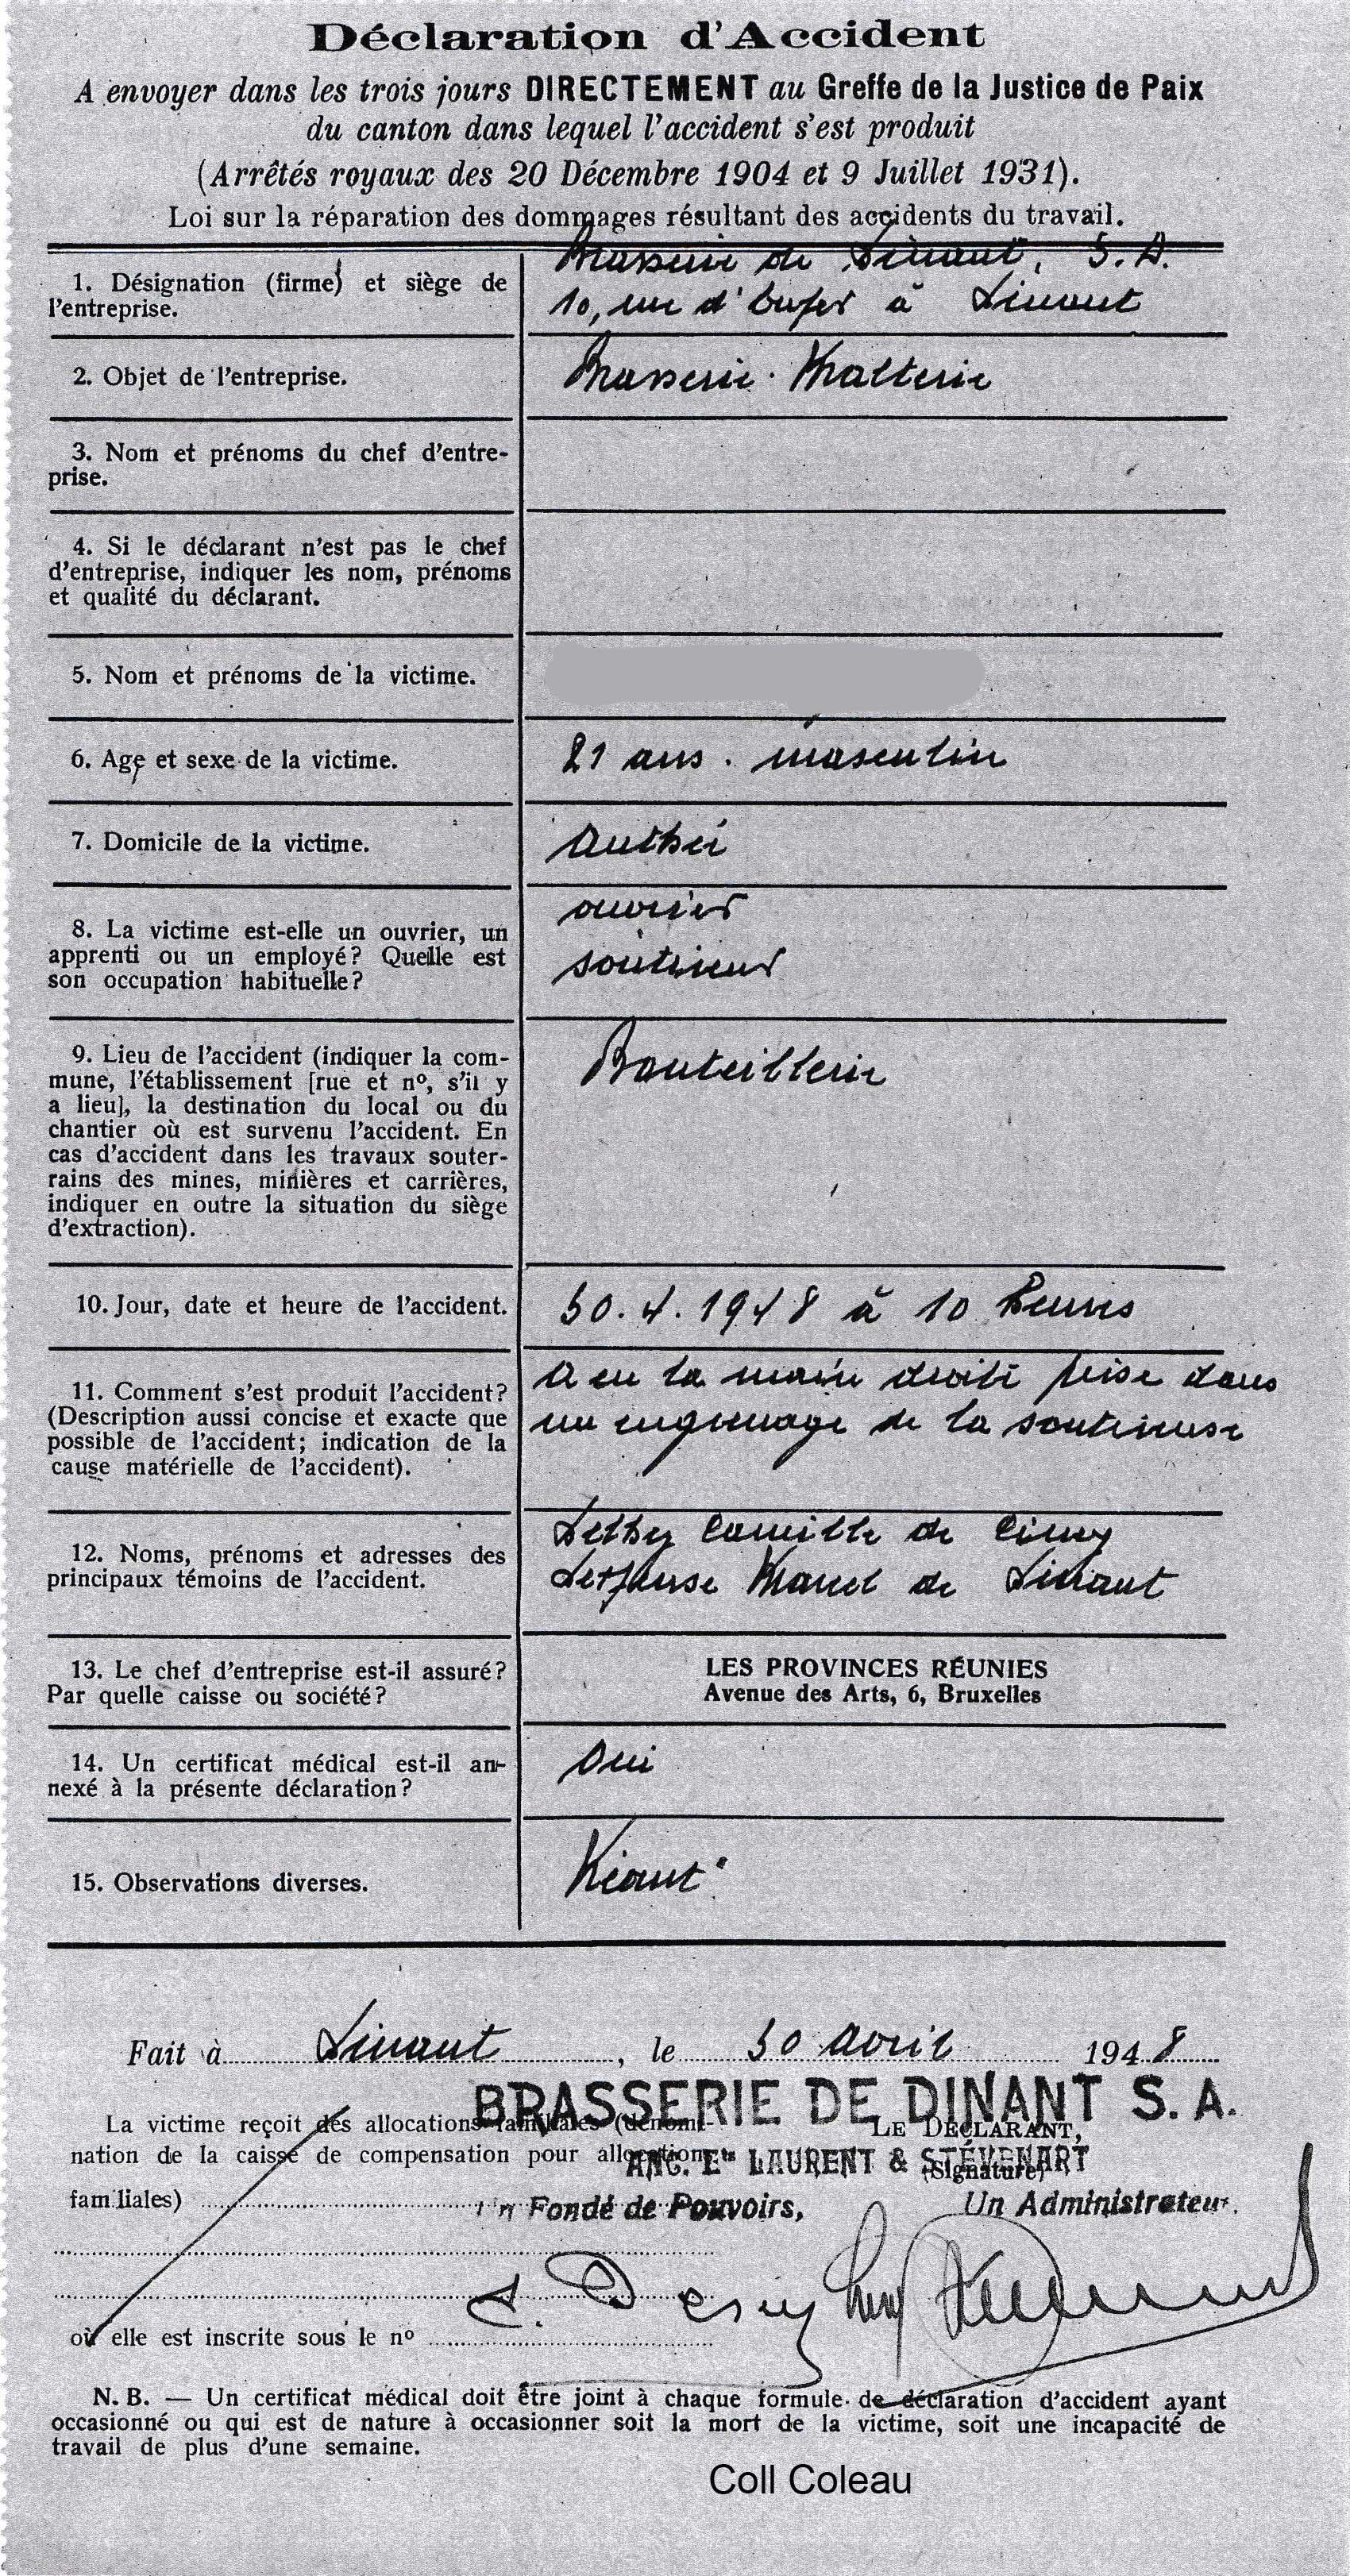 Déclaration d'Accident
A envoyer dans les trois jours DIRECTEMENT au Greffe de la Justice de Paix
du canton dans lequel l'accident s'est produit
(Arrêtés royaux des 20 Décembre 1904 et 9 Juillet 1931).
Loi sur la réparation des dommages résultant des accidents du travail.
1. Désignation (firme) et siège de
l'entreprise.
Brasserie de Dinant, S.A.
10, rue d' à Dinant
2. Objet de l'entreprise.
Brasserie. Malterie
3. Nom et prénoms du chef d'entre-
prise.
4. Si le déclarant n'est pas le chef
d'entreprise, indiquer les nom, prénoms
et qualité du déclarant.
5. Nom et prénoms de la victime.
6. Age et sexe de la victime.
21 ans. masculin
7. Domicile de la victime.
8. La victime est-elle un ouvrier, un
apprenti ou un employé? Quelle est
son occupation habituelle?
ouvrier
soutireur
9. Lieu de l'accident (indiquer la com-
mune, l'établissement [rue et nº, s'il y
a lieu], la destination du local ou du
chantier où est survenu l'accident. En
cas d'accident dans les travaux souter-
rains des mines, minières et carrières,
indiquer en outre la situation du siège
d'extraction).
Bouteillerie
10. Jour, date et heure de l'accident.
30.4.1948 à 10 heures
11. Comment s'est produit l'accident?
(Description aussi concise et exacte que
possible de l'accident; indication de la
cause matérielle de l'accident).
A eu la main droite prise dans
un engrenage de la soutireuse
12. Noms, prénoms et adresses des
principaux témoins de l'accident.
Camille de Ciney
Marcel de Dinant
13. Le chef d'entreprise est-il assuré?
Par quelle caisse ou société?
LES PROVINCES RÉUNIES
Avenue des Arts, 6, Bruxelles
14. Un certificat médical est-il an-
nexé à la présente déclaration?
Oui
15. Observations diverses.
Néant
Fait à Dinant, le 30 Avril 1948
BRASSERIE DE DINANT S.A.
La victime reçoit des allocations familiales (dénomi-
LE DÉCLARANT,
nation de la caisse de compensation pour allocations
ANC. Ets LAURENT & STÉVENART
(Signature)
familiales)
Un Fondé de Pouvoirs,
Un Administrateur.
où elle est inscrite sous le nº
N. B. — Un certificat médical doit être joint à chaque formule de déclaration d'accident ayant
occasionné ou qui est de nature à occasionner soit la mort de la victime, soit une incapacité de
travail de plus d'une semaine.
Coll Coleau